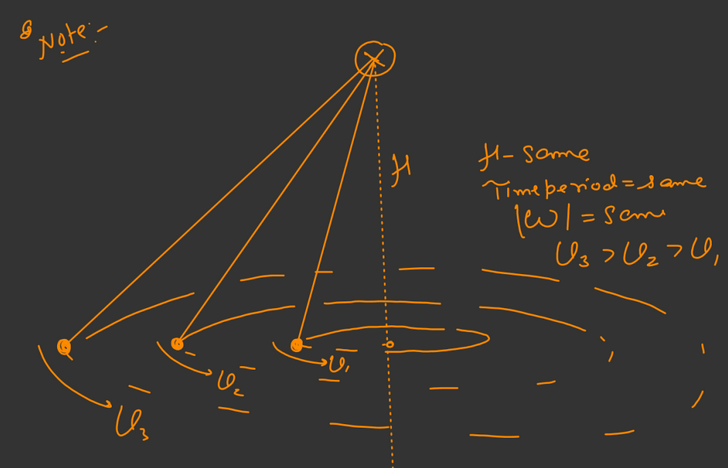 Note:-
H
H- same
Timeperiod = same
|ω| = same
v₃ > v₂ > v₁
v₁
v₂
v₃